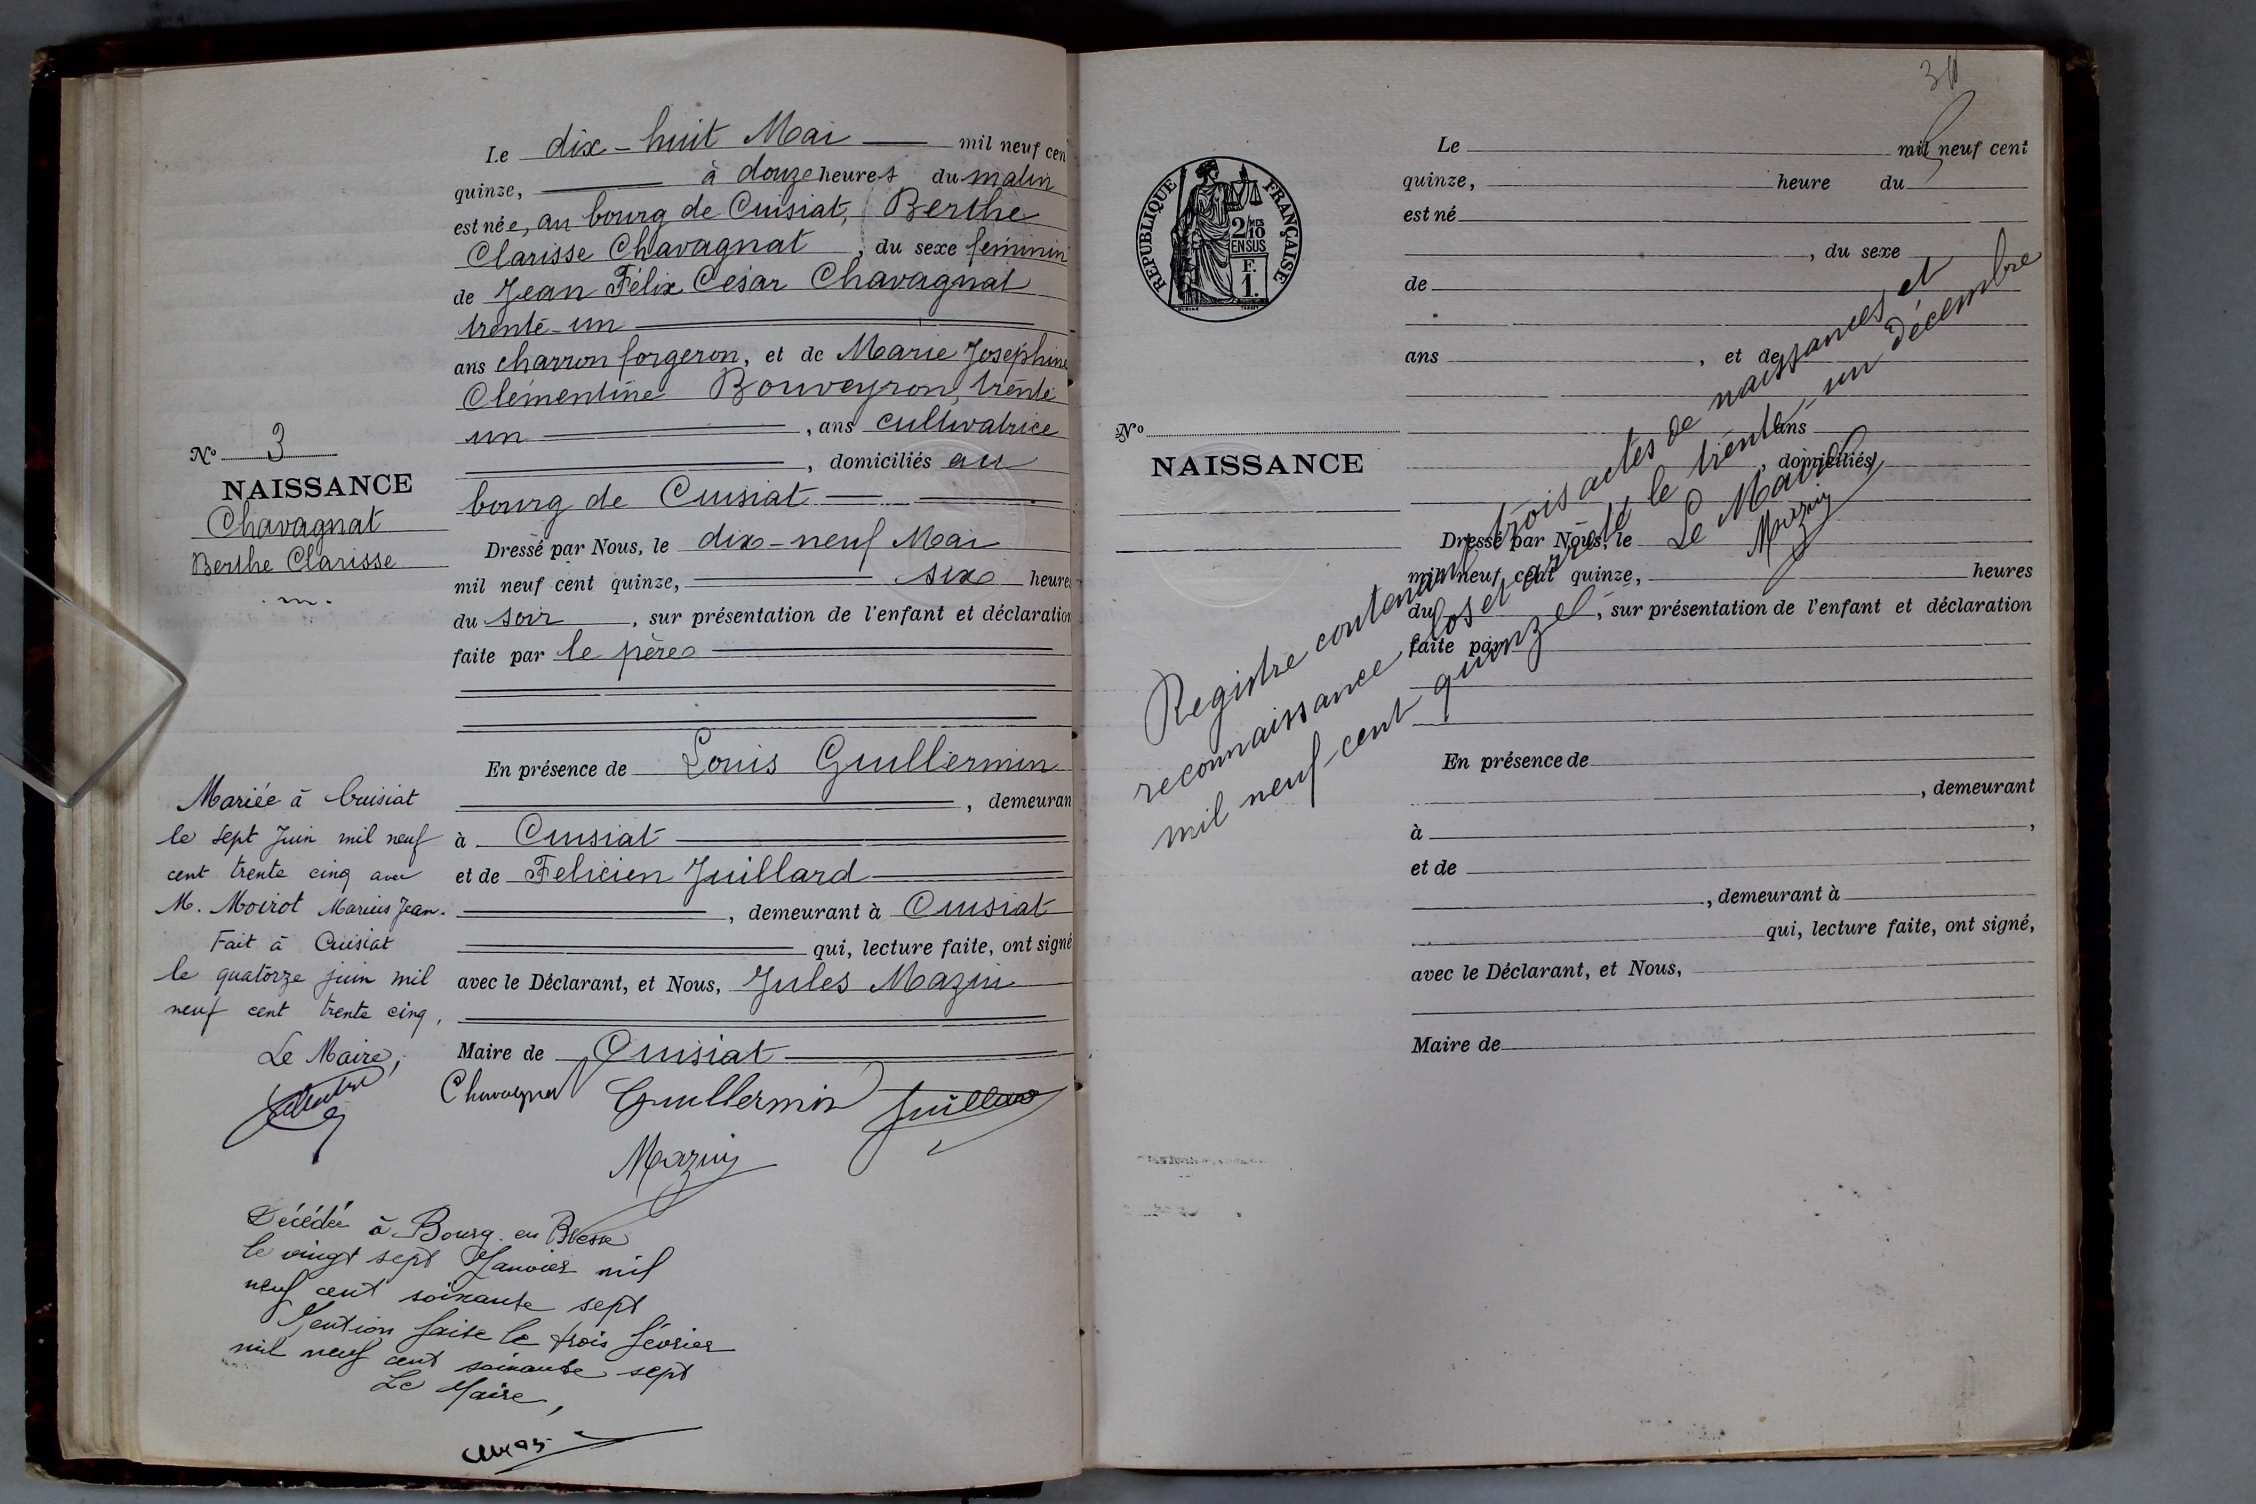 Le dix-huit Mai mil neuf cen
quinze, à douze heures du matin
est née, au bourg de Cuisiat, Berthe
Clarisse Chavagnat, du sexe feminin
de Jean Félix César Chavagnat
trente-un
ans charron forgeron, et de Marie Josephine
Clémentine Bouveyron, trente
un, ans cultivatrice
, domiciliés au
bourg de Cuisiat
Dressé par Nous, le dix-neuf Mai
mil neuf cent quinze, six heures
du soir, sur présentation de l'enfant et déclaration
faite par le père
En présence de Louis Guillermin
, demeuran
à Cuisiat
et de Felicien Juillard
, demeurant à Cuisiat
qui, lecture faite, ont signé
avec le Déclarant, et Nous, Jules Mazuy
Maire de Cuisiat
Chavagnat Guillermin Juillard
Mazuy
No 3
NAISSANCE
Chavagnat
Berthe Clarisse
Mariée à Cuisiat
le sept Juin mil neuf
cent trente cinq avec
M. Moirot Marius Jean.
Fait à Cuisiat
le quatorze juin mil
neuf cent trente cinq,
Le Maire,
Décédée à Bourg en Bresse
le vingt sept Janvier mil
neuf cent soixante sept
Mention faite le trois février
mil neuf cent soixante sept
Le Maire,
RÉPUBLIQUE FRANÇAISE
2/10
EN SUS
F.
1.
No
NAISSANCE
Le mil neuf cent
quinze, heure du
est né
, du sexe
de
ans , et de
ans
, domiciliés
Dressé par Nous, le
mil neuf cent quinze, heures
du , sur présentation de l'enfant et déclaration
faite par
En présence de
, demeurant
à ,
et de
, demeurant à
qui, lecture faite, ont signé,
avec le Déclarant, et Nous,
Maire de
Registre contenant trois actes de naissances et
reconnaissance clos et arrêté, le trente-un décembre
mil neuf cent quinze
Le Maire
Mazuy